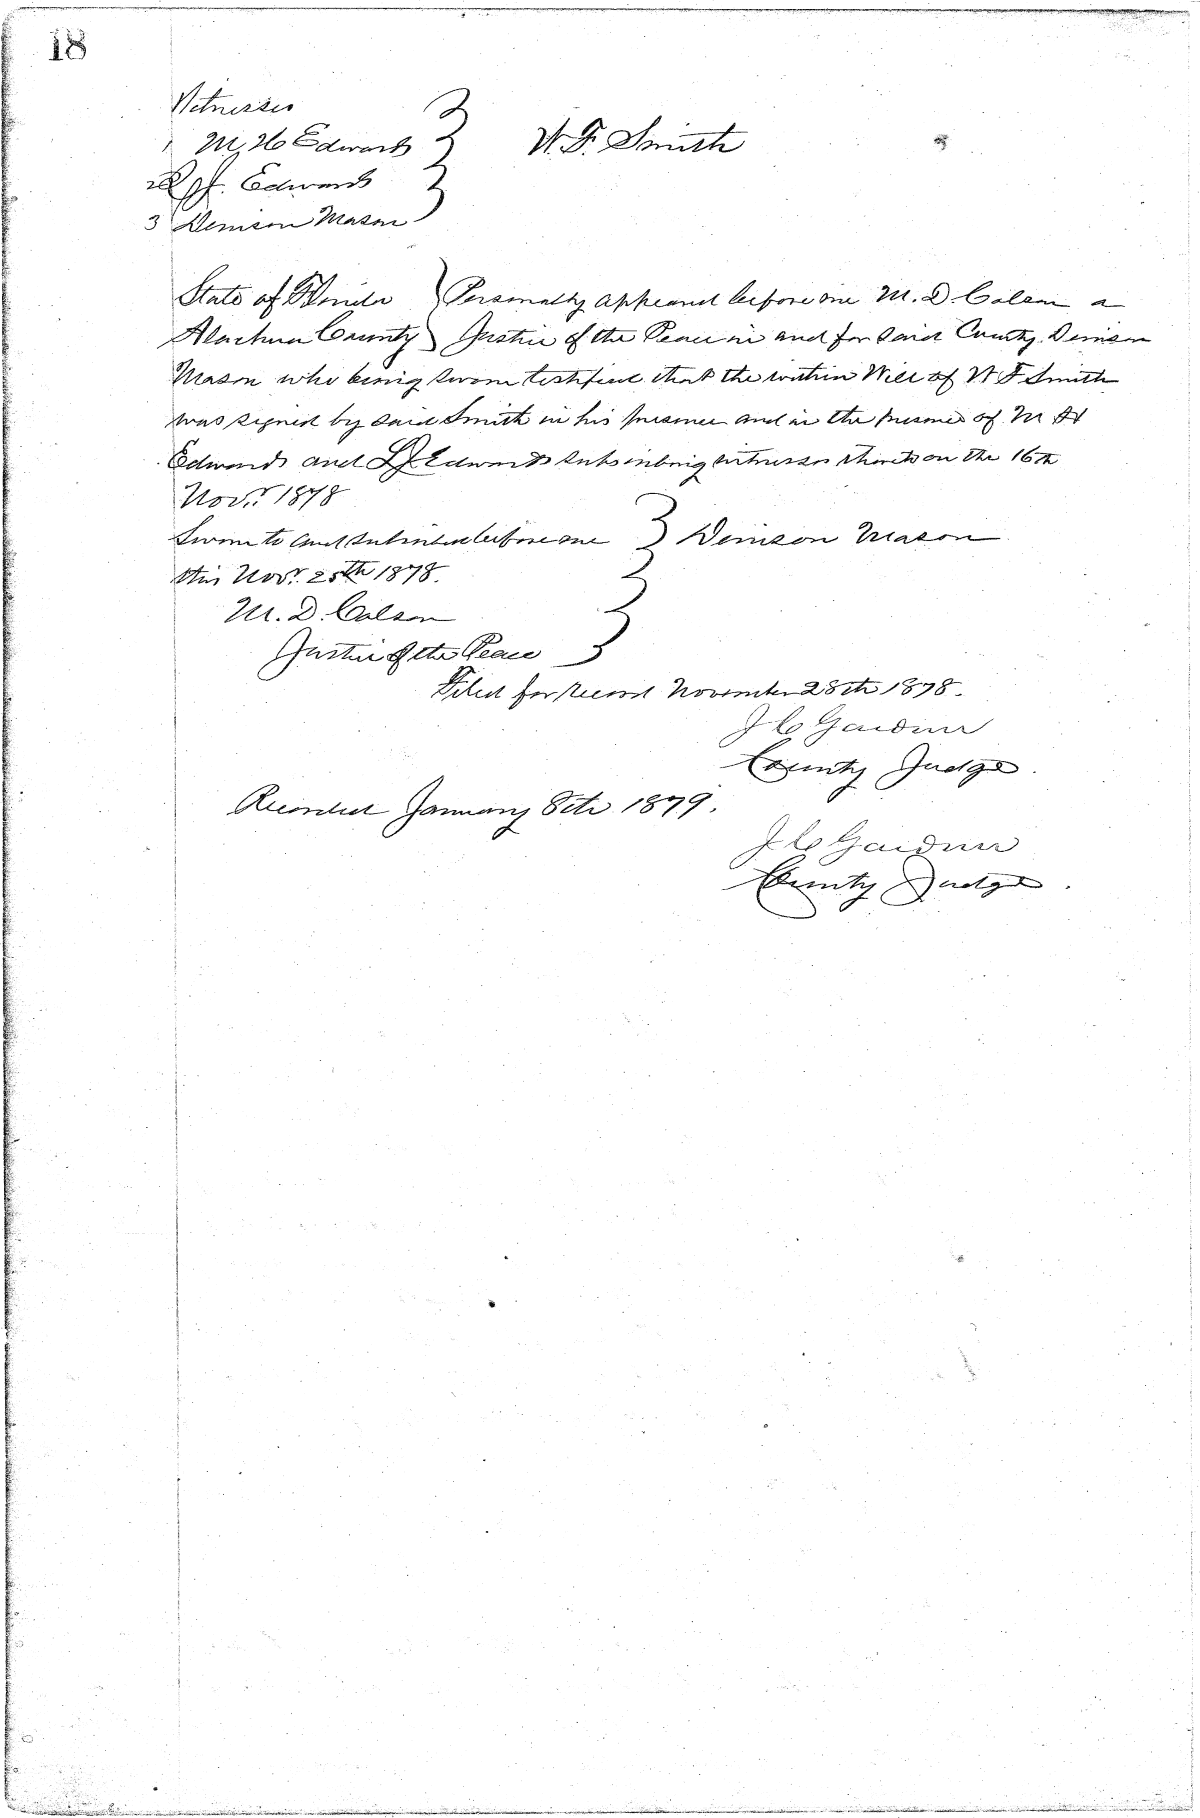 18
Witnesses
1 M. H. Edwards W. F. Smith
2 Edwards
3 Denison Mason
State of Florida Personally appeared before me M. D. Colson a
Alachua County Justice of the Peace in and for said County Denison
Mason who being sworn testified that the within Will of W F Smith
was signed by said Smith in his presence and in the presence of M H
Edwards and Edwards subscribing witnesses thereto on the 16th
Novr. 1878
Sworn to and subscribed before me Denison Mason
this Novr. 25th 1878.
M. D. Colson
Justice of the Peace
Filed for record November 28th 1878.
J C Gardner
County Judge.
Recorded January 8th 1879.
J C Gardner
County Judge.